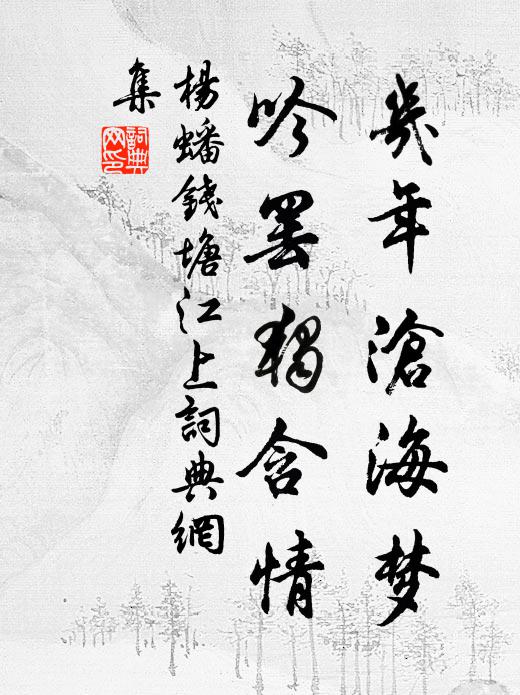 幾年滄海梦
吟罢獨含情
楊蟠錢塘江上詞典網
集
詞典
网印